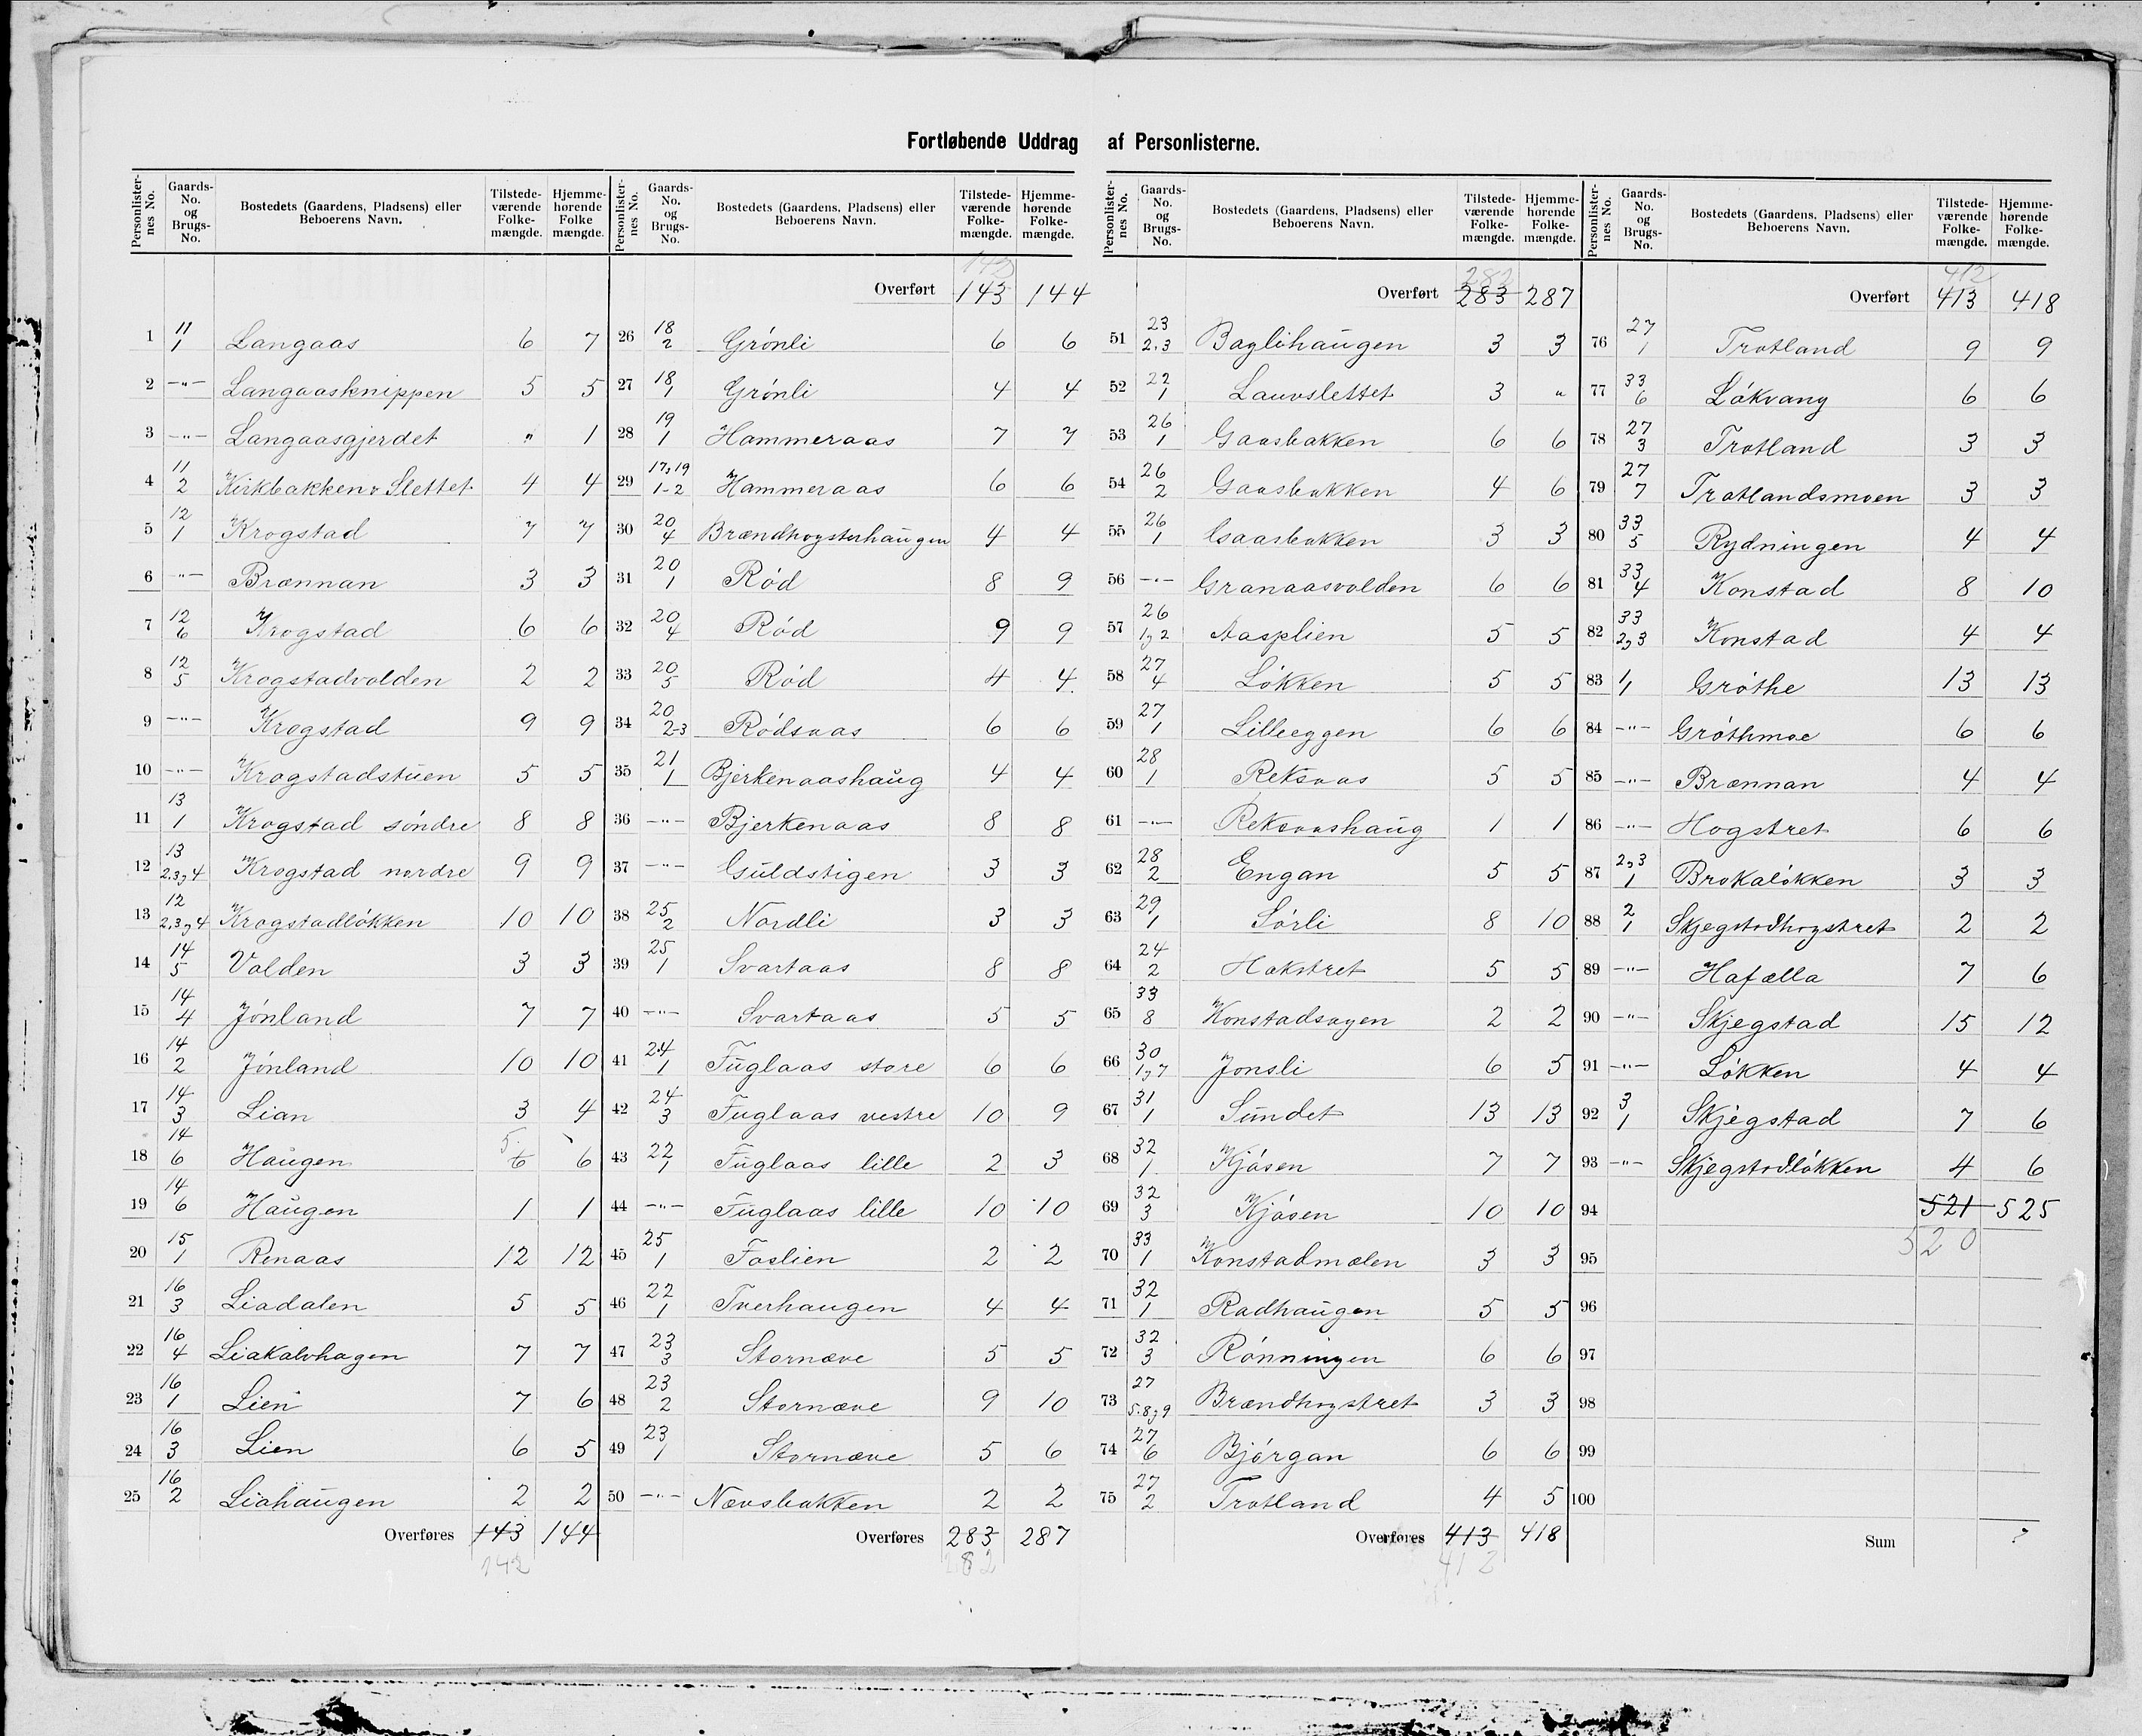 Fortløbende Uddrag af Personlisterne.
Personlister-nes No. | Gaards-No. og Brugs-No. | Bostedets (Gaardens, Pladsens) eller Beboerens Navn. | Tilstede-værende Folke-mængde. | Hjemme-hørende Folke mængde.
1 | 11 1 | Langaas | 6 | 7
2 | —"— | Langaasknippen | 5 | 5
3 | —"— | Langaasgjerdet | " | 1
4 | 11 2 | Kirkbakken v Slettet | 4 | 4
5 | 12 1 | Krogstad | 7 | 7
6 | —"— | Brænnan | 3 | 3
7 | 12 6 | Krogstad | 6 | 6
8 | 12 5 | Krogstadvolden | 2 | 2
9 | —"— | Krogstad | 9 | 9
10 | —"— | Krogstadstuen | 5 | 5
11 | 13 1 | Krogstad söndre | 8 | 8
12 | 13 2,3,4 | Krogstad nordre | 9 | 9
13 | 12 2,3,4 | Krogstadlökken | 10 | 10
14 | 14 5 | Volden | 3 | 3
15 | 14 4 | Jönland | 7 | 7
16 | 14 2 | Jönland | 10 | 10
17 | 14 3 | Lian | 3 | 4
18 | 14 6 | Haugen | 5 6 | 6
19 | 14 6 | Haugen | 1 | 1
20 | 15 1 | Renaas | 12 | 12
21 | 16 3 | Liadalen | 5 | 5
22 | 16 4 | Liakalvhagen | 7 | 7
23 | 16 1 | Lien | 7 | 6
24 | 16 3 | Lien | 6 | 5
25 | 16 2 | Liahaugen | 2 | 2
Overføres 143 144
142
Personlister-nes No. | Gaards-No. og Brugs-No. | Bostedets (Gaardens, Pladsens) eller Beboerens Navn. | Tilstede-værende Folke-mængde. | Hjemme-hørende Folke-mængde.
142
Overført 143 144
26 | 18 2 | Grönli | 6 | 6
27 | 18 1 | Grönli | 4 | 4
28 | 19 1 | Hammeraas | 7 | 7
29 | 17,19 1-2 | Hammeraas | 6 | 6
30 | 20 4 | Brændhogsterhaugen | 4 | 4
31 | 20 1 | Röd | 8 | 9
32 | 20 4 | Röd | 9 | 9
33 | 20 5 | Röd | 4 | 4
34 | 20 2-3 | Rödsaas | 6 | 6
35 | 21 1 | Bjerkenaashaug | 4 | 4
36 | —"— | Bjerkenaas | 8 | 8
37 | —"— | Guldstigen | 3 | 3
38 | 25 2 | Nordli | 3 | 3
39 | 25 1 | Svartaas | 8 | 8
40 | —"— | Svartaas | 5 | 5
41 | 24 1 | Fuglaas store | 6 | 6
42 | 24 3 | Fuglaas vestre | 10 | 9
43 | 22 1 | Fuglaas lille | 2 | 3
44 | —"— | Fuglaas lille | 10 | 10
45 | 25 1 | Foslien | 2 | 2
46 | 22 1 | Tverhaugen | 4 | 4
47 | 23 3 | Stornæve | 5 | 5
48 | 23 2 | Stornæve | 9 | 10
49 | 23 1 | Stornæve | 5 | 6
50 | —"— | Nævsbakken | 2 | 2
Overføres 283 287
282
Personlister-nes No. | Gaards-No. og Brugs-No. | Bostedets (Gaardens, Pladsens) eller Beboerens Navn. | Tilstede-værende Folke-mængde. | Hjemme-hørende Folke-mængde.
282
Overført 283 287
51 | 23 2,3 | Baglihaugen | 3 | 3
52 | 22 1 | Lauvslettet | 3 | "
53 | 26 1 | Gaasbakken | 6 | 6
54 | 26 2 | Gaasbakken | 4 | 6
55 | 26 1 | Gaasbakken | 3 | 3
56 | —"— | Granaasvolden | 6 | 6
57 | 26 1,2 | Aasplien | 5 | 5
58 | 27 4 | Lökken | 5 | 5
59 | 27 1 | Lilleeggen | 6 | 6
60 | 28 1 | Reksaas | 5 | 5
61 | —"— | Reksaashaug | 1 | 1
62 | 28 2 | Engan | 5 | 5
63 | 29 1 | Sörli | 8 | 10
64 | 24 2 | Hakstret | 5 | 5
65 | 33 8 | Konstadsagen | 2 | 2
66 | 30 1,7 | Jonsli | 6 | 5
67 | 31 1 | Sundet | 13 | 13
68 | 32 1 | Kjösen | 7 | 7
69 | 32 3 | Kjösen | 10 | 10
70 | 33 1 | Konstadmælen | 3 | 3
71 | 32 1 | Radhaugen | 5 | 5
72 | 32 3 | Rönningen | 6 | 6
73 | 27 5.8,9 | Brændhogstret | 3 | 3
74 | 27 6 | Björgan | 6 | 6
75 | 27 2 | Trotland | 4 | 5
Overføres 413 418
412
Personlister-nes No. | Gaards-No. og Brugs-No. | Bostedets (Gaardens, Pladsens) eller Beboerens Navn. | Tilstede-værende Folke-mængde. | Hjemme-hørende Folke-mængde.
412
Overført 413 418
76 | 27 1 | Trotland | 9 | 9
77 | 33 6 | Lökvang | 6 | 6
78 | 27 3 | Trotland | 3 | 3
79 | 27 7 | Trotlandsmoen | 3 | 3
80 | 33 5 | Rydningen | 4 | 4
81 | 33 4 | Konstad | 8 | 10
82 | 33 2,3 | Konstad | 4 | 4
83 | 1/1 | Gröthe | 13 | 13
84 | —"— | Gröthmoe | 6 | 6
85 | —"— | Brænnan | 4 | 4
86 | —"— | Hogstret | 6 | 6
87 | 2,3 1 | Brokalökken | 3 | 3
88 | 2 1 | Skjegstadhogstret | 2 | 2
89 | —"— | Hafælla | 7 | 6
90 | —"— | Skjegstad | 15 | 12
91 | —"— | Lökken | 4 | 4
92 | 3 1 | Skjegstad | 7 | 6
93 | —"— | Skjegstadlökken | 4 | 6
94 521 525
95 520
96
97
98
99
100
Sum ?